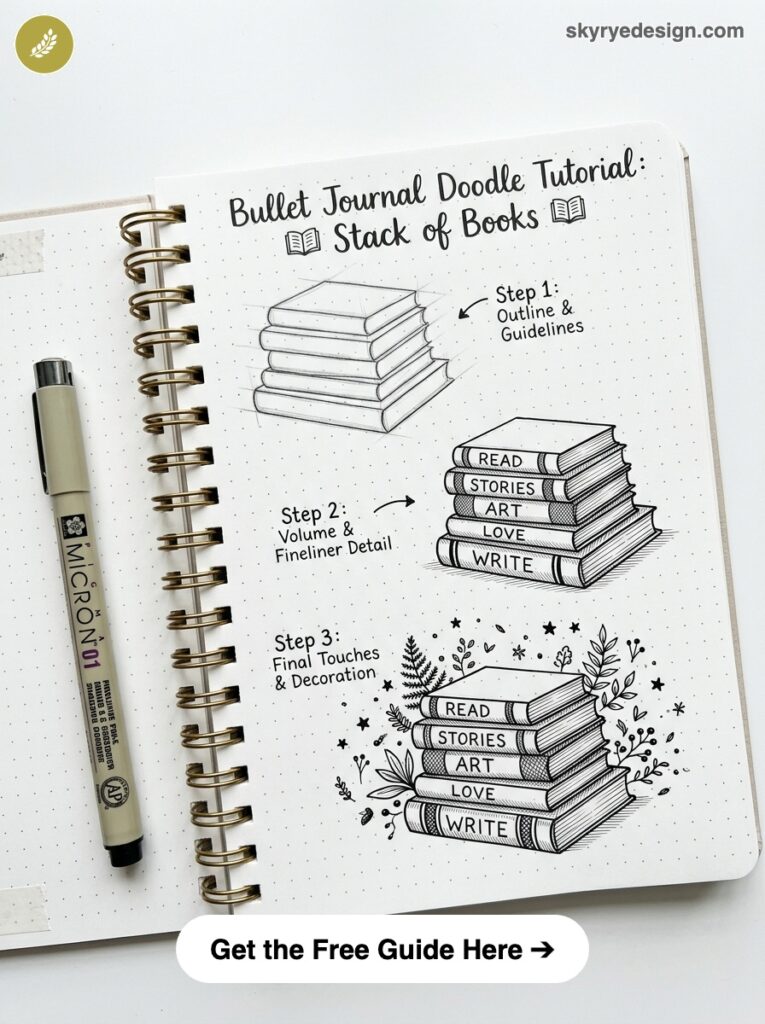 skyryedesign.com
Bullet Journal Doodle Tutorial:
Stack of Books
Step 1:
Outline &
Guidelines
READ
STORIES
ART
LOVE
WRITE
Step 2:
Volume &
Fineliner Detail
Step 3:
Final Touches
& Decoration
READ
STORIES
ART
LOVE
WRITE
MICRON 01
AP
Get the Free Guide Here ➔